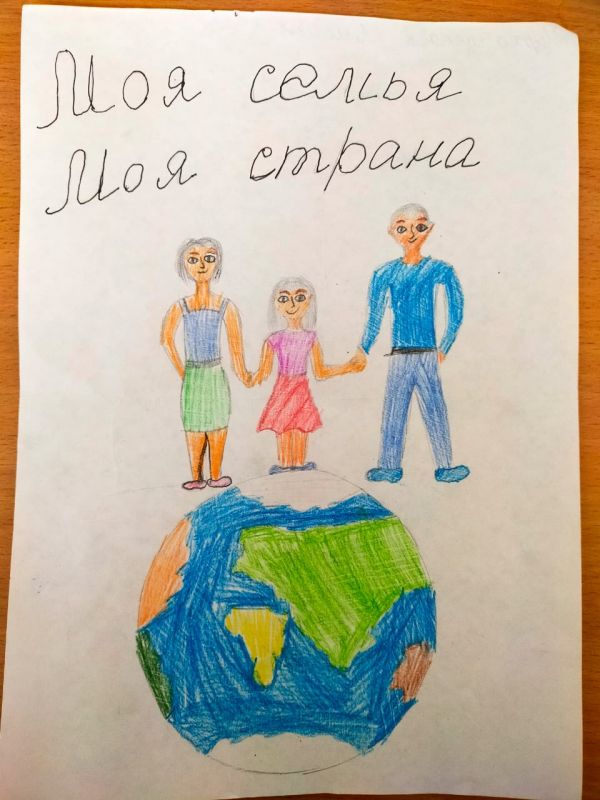 Моя семья
Моя страна